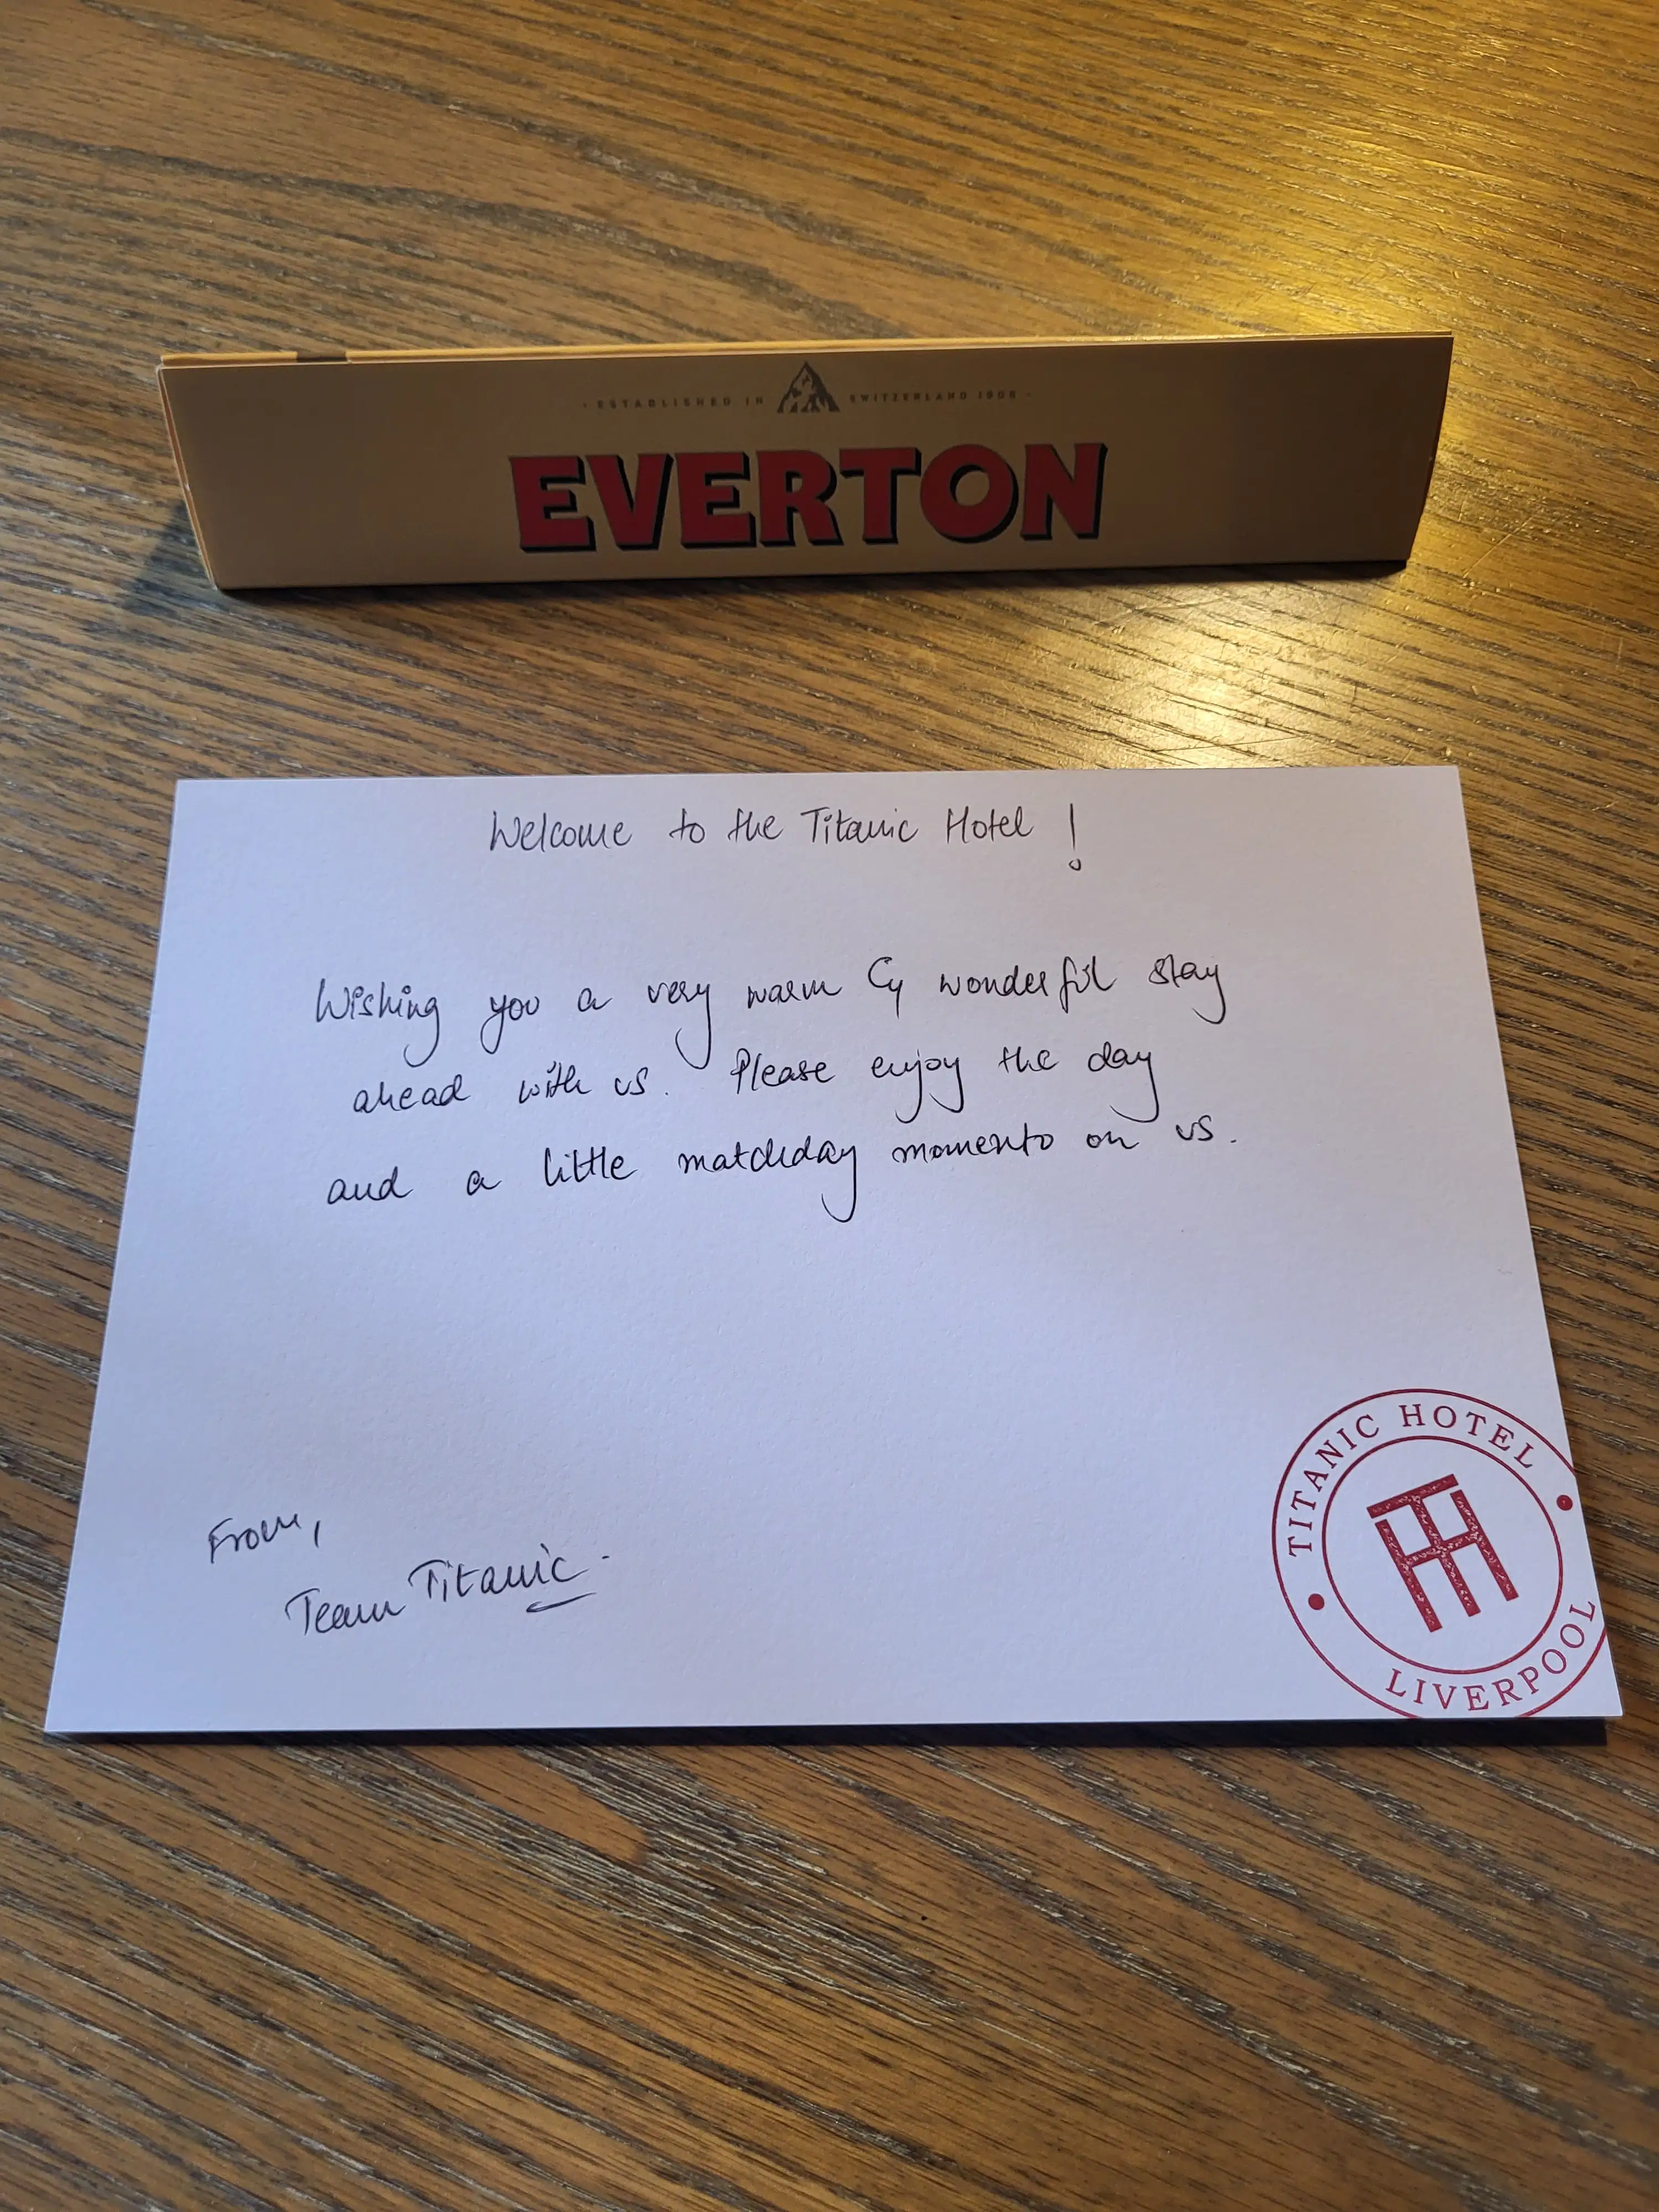 · ESTABLISHED IN SWITZERLAND 1908 ·
EVERTON
Welcome to the Titanic Hotel !
Wishing you a very warm & wonderful stay
ahead with us. Please enjoy the day
and a little matchday momento on us.
From,
Team Titanic.
TITANIC HOTEL
TH
LIVERPOOL